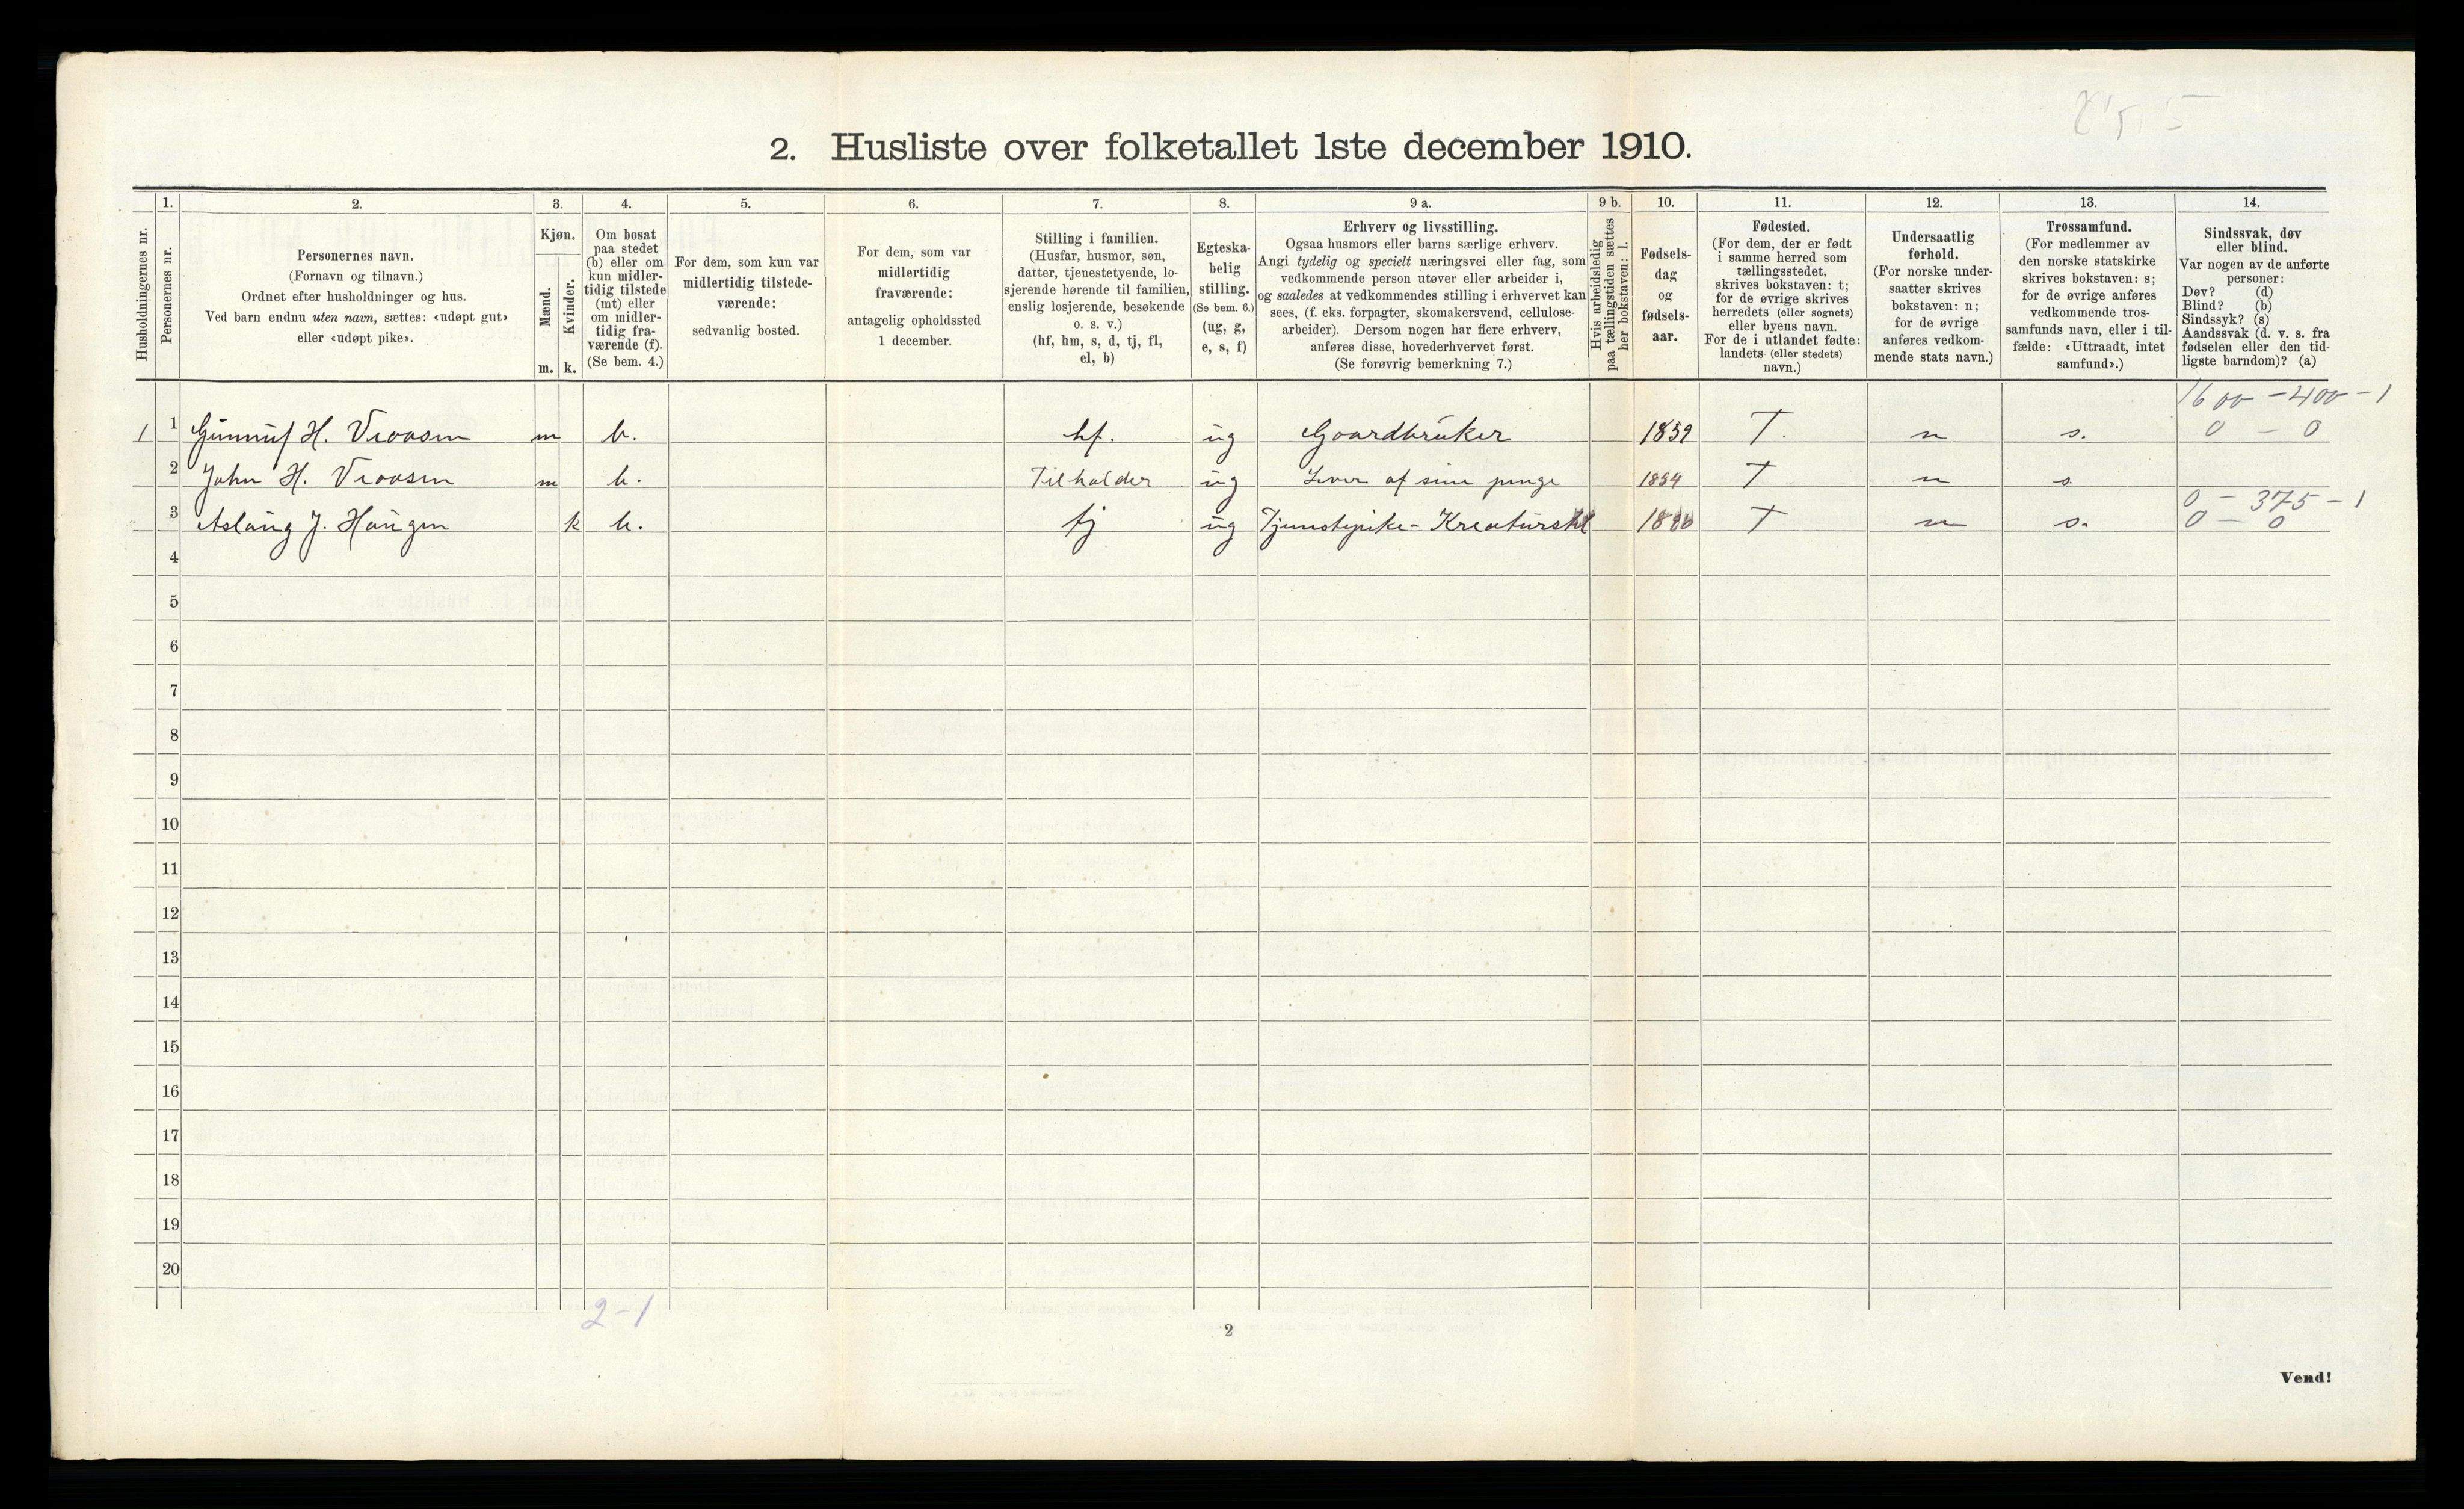 2. Husliste over folketallet 1ste december 1910.
Husholdningernes nr.
1.
Personernes nr.
2.
Personernes navn.
(Fornavn og tilnavn.)
Ordnet efter husholdninger og hus.
Ved barn endnu uten navn, sættes: «udøpt gut»
eller «udøpt pike».
3.
Kjøn.
Mænd.
Kvinder.
m. k.
4.
Om bosat
paa stedet
(b) eller om
kun midler-
tidig tilstede
(mt) eller
om midler-
tidig fra-
værende (f).
(Se bem. 4.)
5.
For dem, som kun var
midlertidig tilstede-
værende:
sedvanlig bosted.
6.
For dem, som var
midlertidig
fraværende:
antagelig opholdssted
1 december.
7.
Stilling i familien.
(Husfar, husmor, søn,
datter, tjenestetyende, lo-
sjerende hørende til familien,
enslig losjerende, besøkende
o. s. v.)
(hf, hm, s, d, tj, fl,
el, b)
8.
Egteska-
belig
stilling.
(Se bem. 6.)
(ug, g,
e, s, f)
9 a.
Erhverv og livsstilling.
Ogsaa husmors eller barns særlige erhverv.
Angi tydelig og specielt næringsvei eller fag, som
vedkommende person utøver eller arbeider i,
og saaledes at vedkommendes stilling i erhvervet kan
sees, (f. eks. forpagter, skomakersvend, cellulose-
arbeider). Dersom nogen har flere erhverv,
anføres disse, hovederhvervet først.
(Se forøvrig bemerkning 7.)
9 b.
Hvis arbeidsledig
paa tællingstiden sættes
her bokstaven: l.
10.
Fødsels-
dag
og
fødsels-
aar.
11.
Fødested.
(For dem, der er født
i samme herred som
tællingsstedet,
skrives bokstaven: t;
for de øvrige skrives
herredets (eller sognets)
eller byens navn.
For de i utlandet fødte:
landets (eller stedets)
navn.)
12.
Undersaatlig
forhold.
(For norske under-
saatter skrives
bokstaven: n;
for de øvrige
anføres vedkom-
mende stats navn.)
13.
Trossamfund.
(For medlemmer av
den norske statskirke
skrives bokstaven: s;
for de øvrige anføres
vedkommende tros-
samfunds navn, eller i til-
fælde: «Uttraadt, intet
samfund».)
14.
Sindssvak, døv
eller blind.
Var nogen av de anførte
personer:
Døv? (d)
Blind? (b)
Sindssyk? (s)
Aandssvak (d. v. s. fra
fødselen eller den tid-
ligste barndom)? (a)
1600 - 400 - 1
1 1 Gunnuf H. Vraasen m b. hf. ug Gaardbruker 1859 T. n s. 0 - 0
2 John H. Vraasen m b. Tilholder ug Lever af sine penge 1854 T n s
0 - 375 - 1
3 Aslaug J. Haugen k b. tj ug Tjenestepike - Kreaturstel T n s. 0 - 0
4
5
6
7
8
9
10
11
12
13
14
15
16
17
18
19
20
2-1
2
Vend!